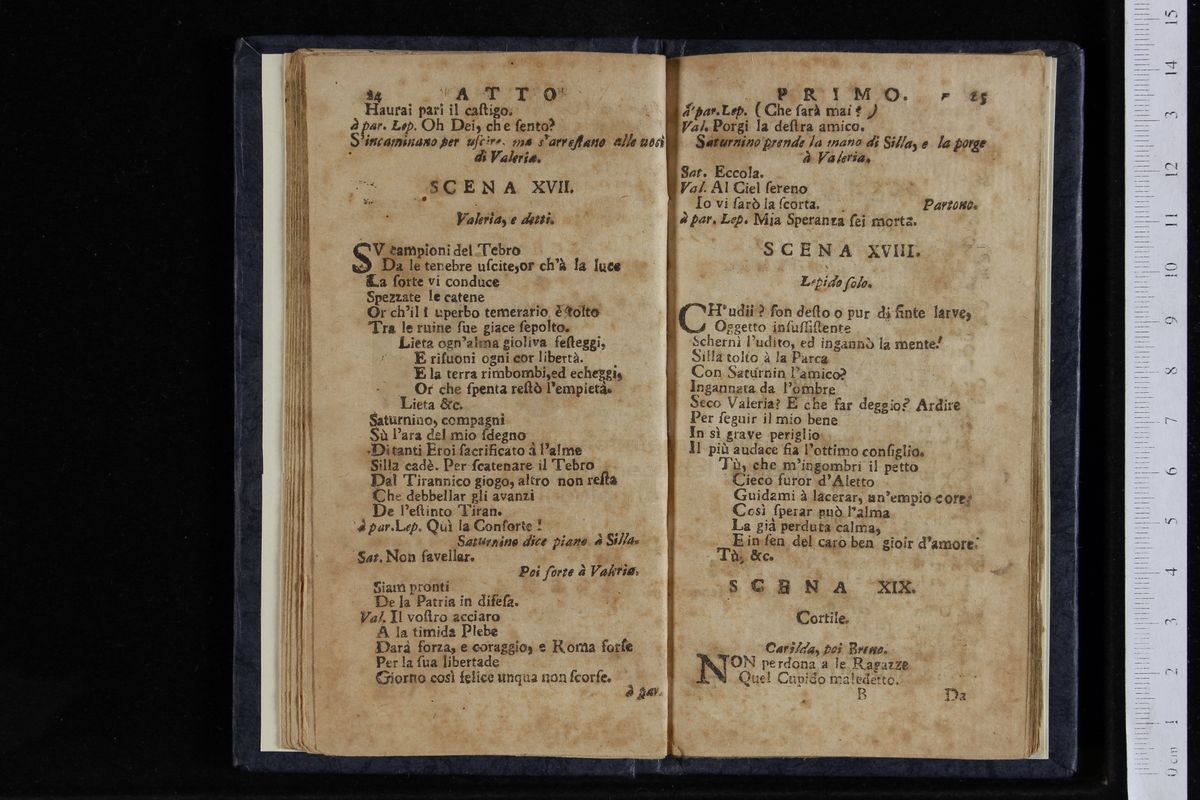 24 ATTO
Haurai pari il caſtigo.
à par. Lep. Oh Dei, che ſento?
S'incaminano per uſcire, ma s'arreſtano alle uoci
di Valeria.
SCENA XVII.
Valeria, e detti.
SV campioni del Tebro
Da le tenebre uſcite, or ch'à la luce
La ſorte vi conduce
Spezzate le catene
Or ch'il ſuperbo temerario è tolto
Tra le ruine ſue giace ſepolto.
Lieta ogn'alma gioliva feſteggi,
E riſuoni ogni cor libertà.
E la terra rimbombi, ed echeggi,
Or che ſpenta reſtò l'empietà.
Lieta &c.
Saturnino, compagni
Sù l'ara del mio ſdegno
Di tanti Eroi ſacrificato à l'alme
Silla cadè. Per ſcatenare il Tebro
Dal Tirannico giogo, altro non reſta
Che debbellar gli avanzi
De l'eſtinto Tiran.
à par. Lep. Quì la Conſorte!
Saturnino dice piano à Silla.
Sat. Non favellar.
Poi forte à Valeria,
Siam pronti
De la Patria in difeſa.
Val. Il voſtro acciaro
A la timida Plebe
Darà forza, e coraggio, e Roma forſe
Per la ſua libertade
Giorno così felice unqua non ſcorſe.
à par.
PRIMO. 25
à par. Lep. (Che ſarà mai?)
Val. Porgi la deſtra amico.
Saturnino prende la mano di Silla, e la porge
à Valeria.
Sat. Eccola.
Val. Al Ciel ſereno
Io vi ſarò la ſcorta. Partono.
à par. Lep. Mia Speranza ſei morta.
SCENA XVIII.
Lepido ſolo.
CH'udii? ſon deſto o pur di finte larve,
Oggetto inſuſſiſtente
Schernì l'udito, ed ingannò la mente!
Silla tolto à la Parca
Con Saturnin l'amico?
Ingannata da l'ombre
Seco Valeria? E che far deggio? Ardire
Per ſeguir il mio bene
In sì grave periglio
Il più audace fia l'ottimo conſiglio.
Tù, che m'ingombri il petto
Cieco furor d'Aletto
Guidami à lacerar, un'empio core,
Così ſperar può l'alma
La già perduta calma,
E in ſen del caro ben gioir d'amore.
Tù, &c.
SCENA XIX.
Cortile.
Carilda, poi Breno.
NON perdona a le Ragazze
Quel Cupido maledetto.
B Da